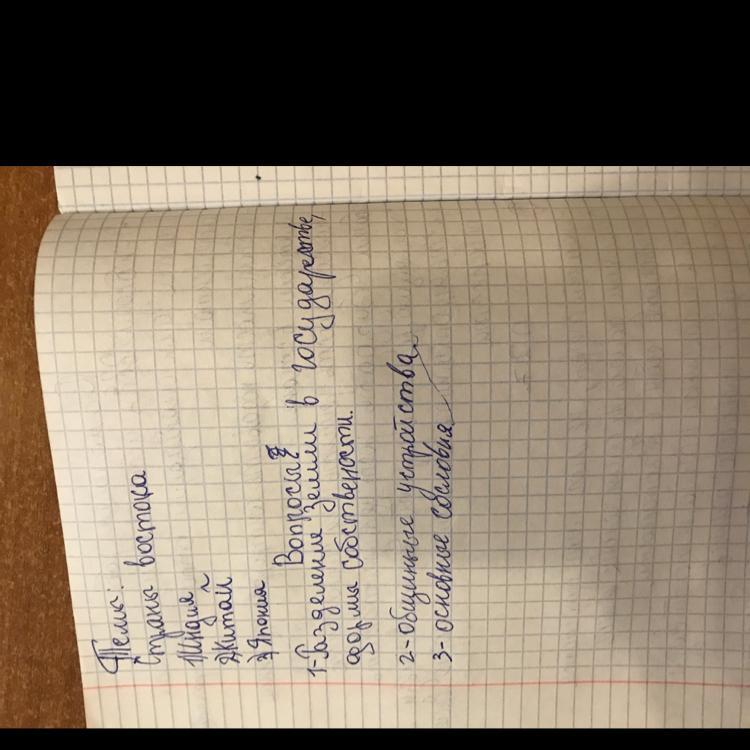 Темы:
Страны востока
1) Индия
2) Китай
3) Япония
Вопросы:
1- Разделение земли в государстве,
формы собствености.
2- Общинные устройства
3- основные сословия